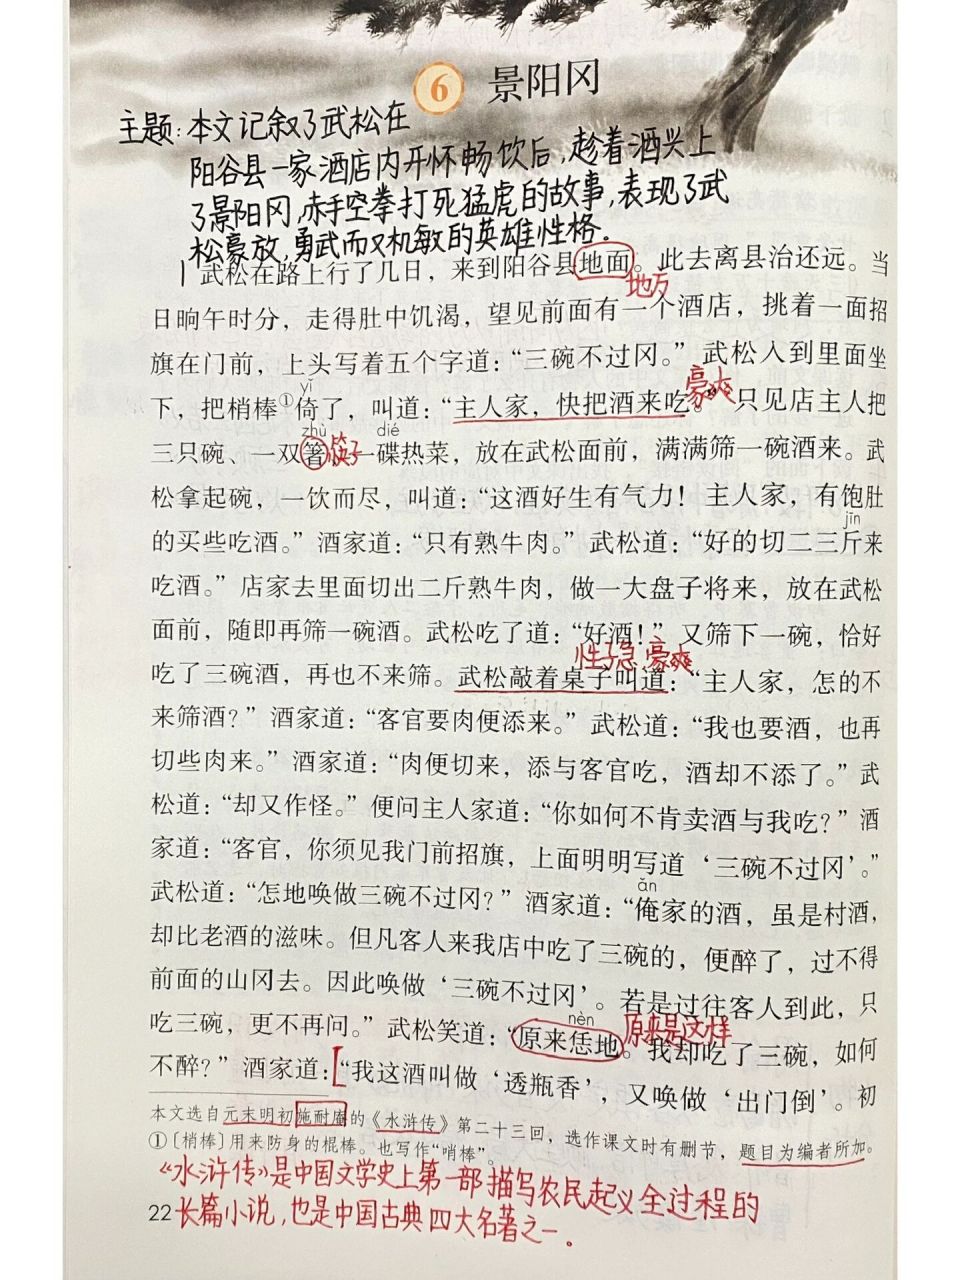 6 景阳冈
主题:本文记叙了武松在
阳谷县一家酒店内开怀畅饮后,趁着酒兴上
了景阳冈,赤手空拳打死猛虎的故事,表现了武
松豪放,勇武而又机敏的英雄性格.
1 武松在路上行了几日，来到阳谷县地面。此去离县治还远。当
地方
日晌午时分，走得肚中饥渴，望见前面有一个酒店，挑着一面招
旗在门前，上头写着五个字道：“三碗不过冈。”武松入到里面坐
yǐ
豪爽
下，把梢棒①倚了，叫道：“主人家，快把酒来吃。”只见店主人把
zhù dié
三只碗、一双箸筷子一碟热菜，放在武松面前，满满筛一碗酒来。武
松拿起碗，一饮而尽，叫道：“这酒好生有气力！主人家，有饱肚
jīn
的买些吃酒。”酒家道：“只有熟牛肉。”武松道：“好的切二三斤来
吃酒。”店家去里面切出二斤熟牛肉，做一大盘子将来，放在武松
面前，随即再筛一碗酒。武松吃了道：“好酒！”又筛下一碗，恰好
性子急、豪爽
吃了三碗酒，再也不来筛。武松敲着桌子叫道：“主人家，怎的不
来筛酒？”酒家道：“客官要肉便添来。”武松道：“我也要酒，也再
切些肉来。”酒家道：“肉便切来，添与客官吃，酒却不添了。”武
松道：“却又作怪。”便问主人家道：“你如何不肯卖酒与我吃？”酒
家道：“客官，你须见我门前招旗，上面明明写道‘三碗不过冈’。”
武松道：“怎地唤做三碗不过冈？”酒家道：“俺家的酒，虽是村酒，
ǎn
却比老酒的滋味。但凡客人来我店中吃了三碗的，便醉了，过不得
前面的山冈去。因此唤做‘三碗不过冈’。若是过往客人到此，只
nèn
原来是这样
吃三碗，更不再问。”武松笑道：“原来恁地。我却吃了三碗，如何
不醉？”酒家道：“我这酒叫做‘透瓶香’，又唤做‘出门倒’。初
本文选自元末明初施耐庵的《水浒传》第二十三回，选作课文时有删节，题目为编者所加。
①〔梢棒〕用来防身的棍棒。也写作“哨棒”。
《水浒传》是中国文学史上第一部描写农民起义全过程的
长篇小说,也是中国古典四大名著之一.
22